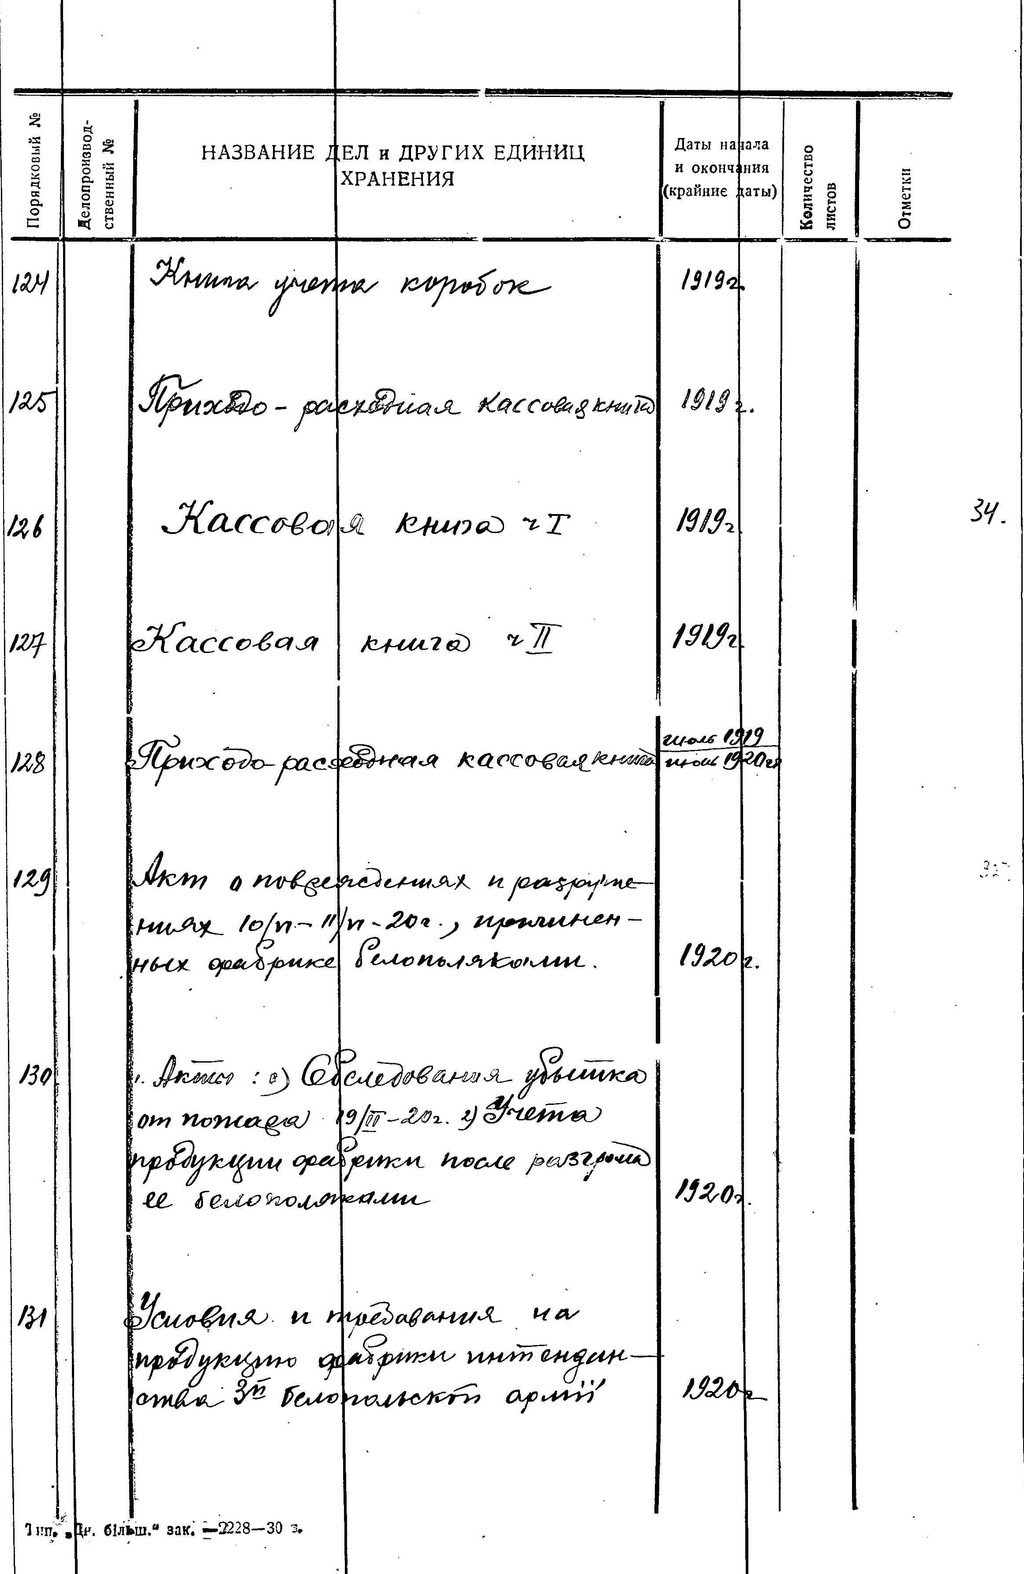 Порядковый №
Делопроизвод-
ственный №
НАЗВАНИЕ ДЕЛ и ДРУГИХ ЕДИНИЦ
ХРАНЕНИЯ
Даты начала
и окончания
(крайние даты)
Количество
листов
Отметки
124 Книга учета коробок 1919г.
125 Приходо-расходная кассовая книга 1919г.
126 Кассовая книга ч I 1919г.
34.
127 Кассовая книга ч II 1919г.
128 Приходо-расходная кассовая книга июль 1919
1920г
129 Акт о повреждениях и разруше-
ниях 10/VI-11/VI-20г., причинен-
ных фабрике белополяками. 1920г.
130 Акты: Обследования убытка
от пожара 19/III-20г. 2) Учета
продукции фабрики после разгрома
ее белополяками 1920г.
131 Условия и требования на
продукцию фабрики интендан-
ства 3й белопольской армії 1920г
Тип. „Дн. більш.“ зак. —2228—30 з.